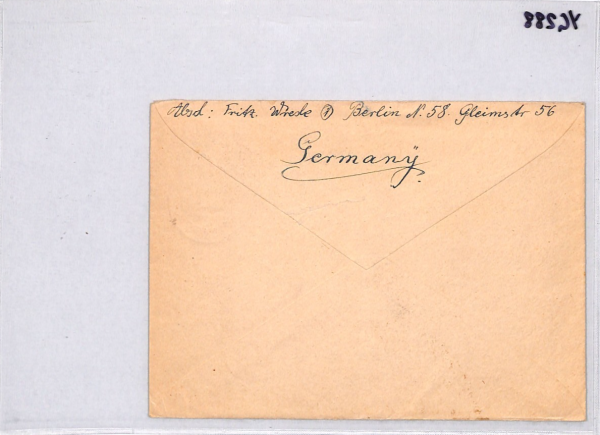 YG288
Absd: Fritz. Wrede ① Berlin N. 58. Gleimstr 56
Germanÿ.